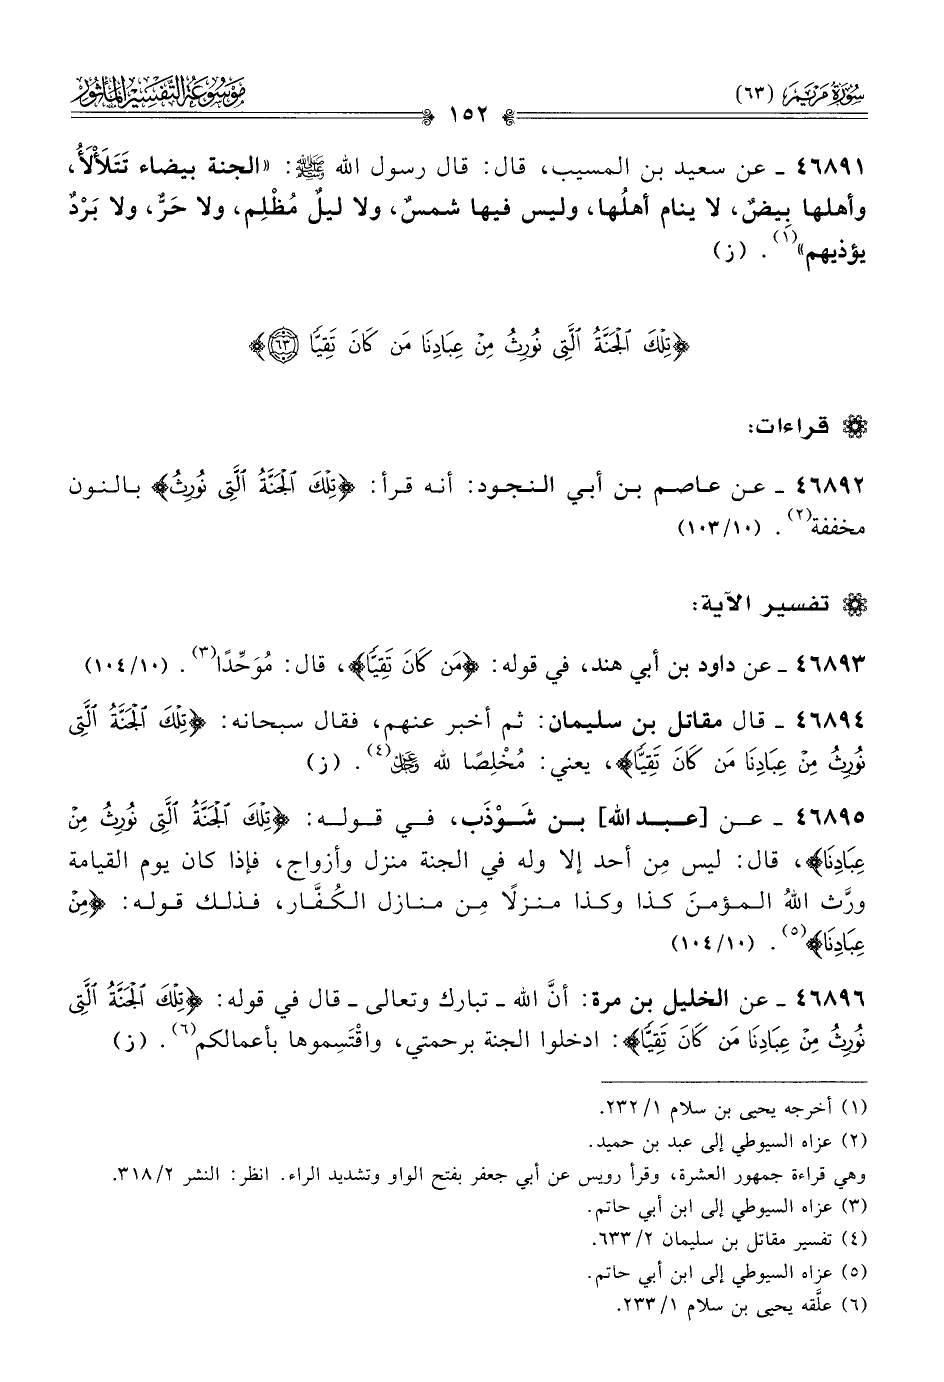 سُورَةُ مَرْيَم (٦٣)
١٥٢
مَوْسُوعَةُ التَّفْسِيرِ المَأْثُورِ
٤٦٨٩١ ـ عن سعيد بن المسيب، قال: قال رسول الله ﷺ: «الجنة بيضاء تَتَلَأْلَأُ،
وأهلها بِيضٌ، لا ينام أهلُها، وليس فيها شمسٌ، ولا ليلٌ مُظْلِم، ولا حَرٌّ، ولا بَرْدٌ
يؤذيهم»(١). (ز)
﴿تِلْكَ ٱلْجَنَّةُ ٱلَّتِى نُورِثُ مِنْ عِبَادِنَا مَن كَانَ تَقِيًّا ٦٣﴾
قراءات:
٤٦٨٩٢ ـ عن عاصم بن أبي النجود: أنه قرأ: ﴿تِلْكَ ٱلْجَنَّةُ ٱلَّتِى نُورِثُ﴾ بالنون
مخففة(٢). (١٠٣/١٠)
تفسير الآية:
٤٦٨٩٣ ـ عن داود بن أبي هند، في قوله: ﴿مَن كَانَ تَقِيًّا﴾، قال: مُوَحِّدًا(٣). (١٠٤/١٠)
٤٦٨٩٤ ـ قال مقاتل بن سليمان: ثم أخبر عنهم، فقال سبحانه: ﴿تِلْكَ ٱلْجَنَّةُ ٱلَّتِى
نُورِثُ مِنْ عِبَادِنَا مَن كَانَ تَقِيًّا﴾، يعني: مُخْلِصًا لله ﷿(٤). (ز)
٤٦٨٩٥ ـ عـن [عـبـد الله] بـن شَـوْذَب، فـي قـولـه: ﴿تِلْكَ ٱلْجَنَّةُ ٱلَّتِى نُورِثُ مِنْ
عِبَادِنَا﴾، قال: ليس مِن أحد إلا وله في الجنة منزل وأزواج، فإذا كان يوم القيامة
ورَّث اللهُ المؤمنَ كذا وكذا منزلًا مِن منازل الكُفَّار، فذلك قوله: ﴿مِنْ
عِبَادِنَا﴾(٥). (١٠٤/١٠)
٤٦٨٩٦ ـ عن الخليل بن مرة: أنَّ الله ـ تبارك وتعالى ـ قال في قوله: ﴿تِلْكَ ٱلْجَنَّةُ ٱلَّتِى
نُورِثُ مِنْ عِبَادِنَا مَن كَانَ تَقِيًّا﴾: ادخلوا الجنة برحمتي، واقْتَسِموها بأعمالكم(٦). (ز)
(١) أخرجه يحيى بن سلام ١/ ٢٣٢.
(٢) عزاه السيوطي إلى عبد بن حميد.
وهي قراءة جمهور العشرة، وقرأ رويس عن أبي جعفر بفتح الواو وتشديد الراء. انظر: النشر ٣١٨/٢.
(٣) عزاه السيوطي إلى ابن أبي حاتم.
(٤) تفسير مقاتل بن سليمان ٢/ ٦٣٣.
(٥) عزاه السيوطي إلى ابن أبي حاتم.
(٦) علَّقه يحيى بن سلام ١/ ٢٣٣.